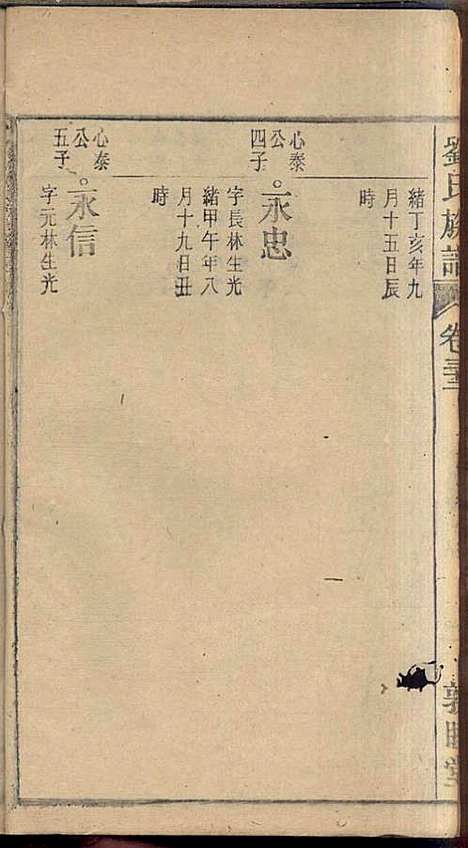 劉氏族譜
卷三
敦睦堂
緒丁亥年九
月十五日辰
時
心泰
公
四子
永忠
字長林生光
緒甲午年八
月十九日丑
時
心泰
公
五子
永信
字元林生光